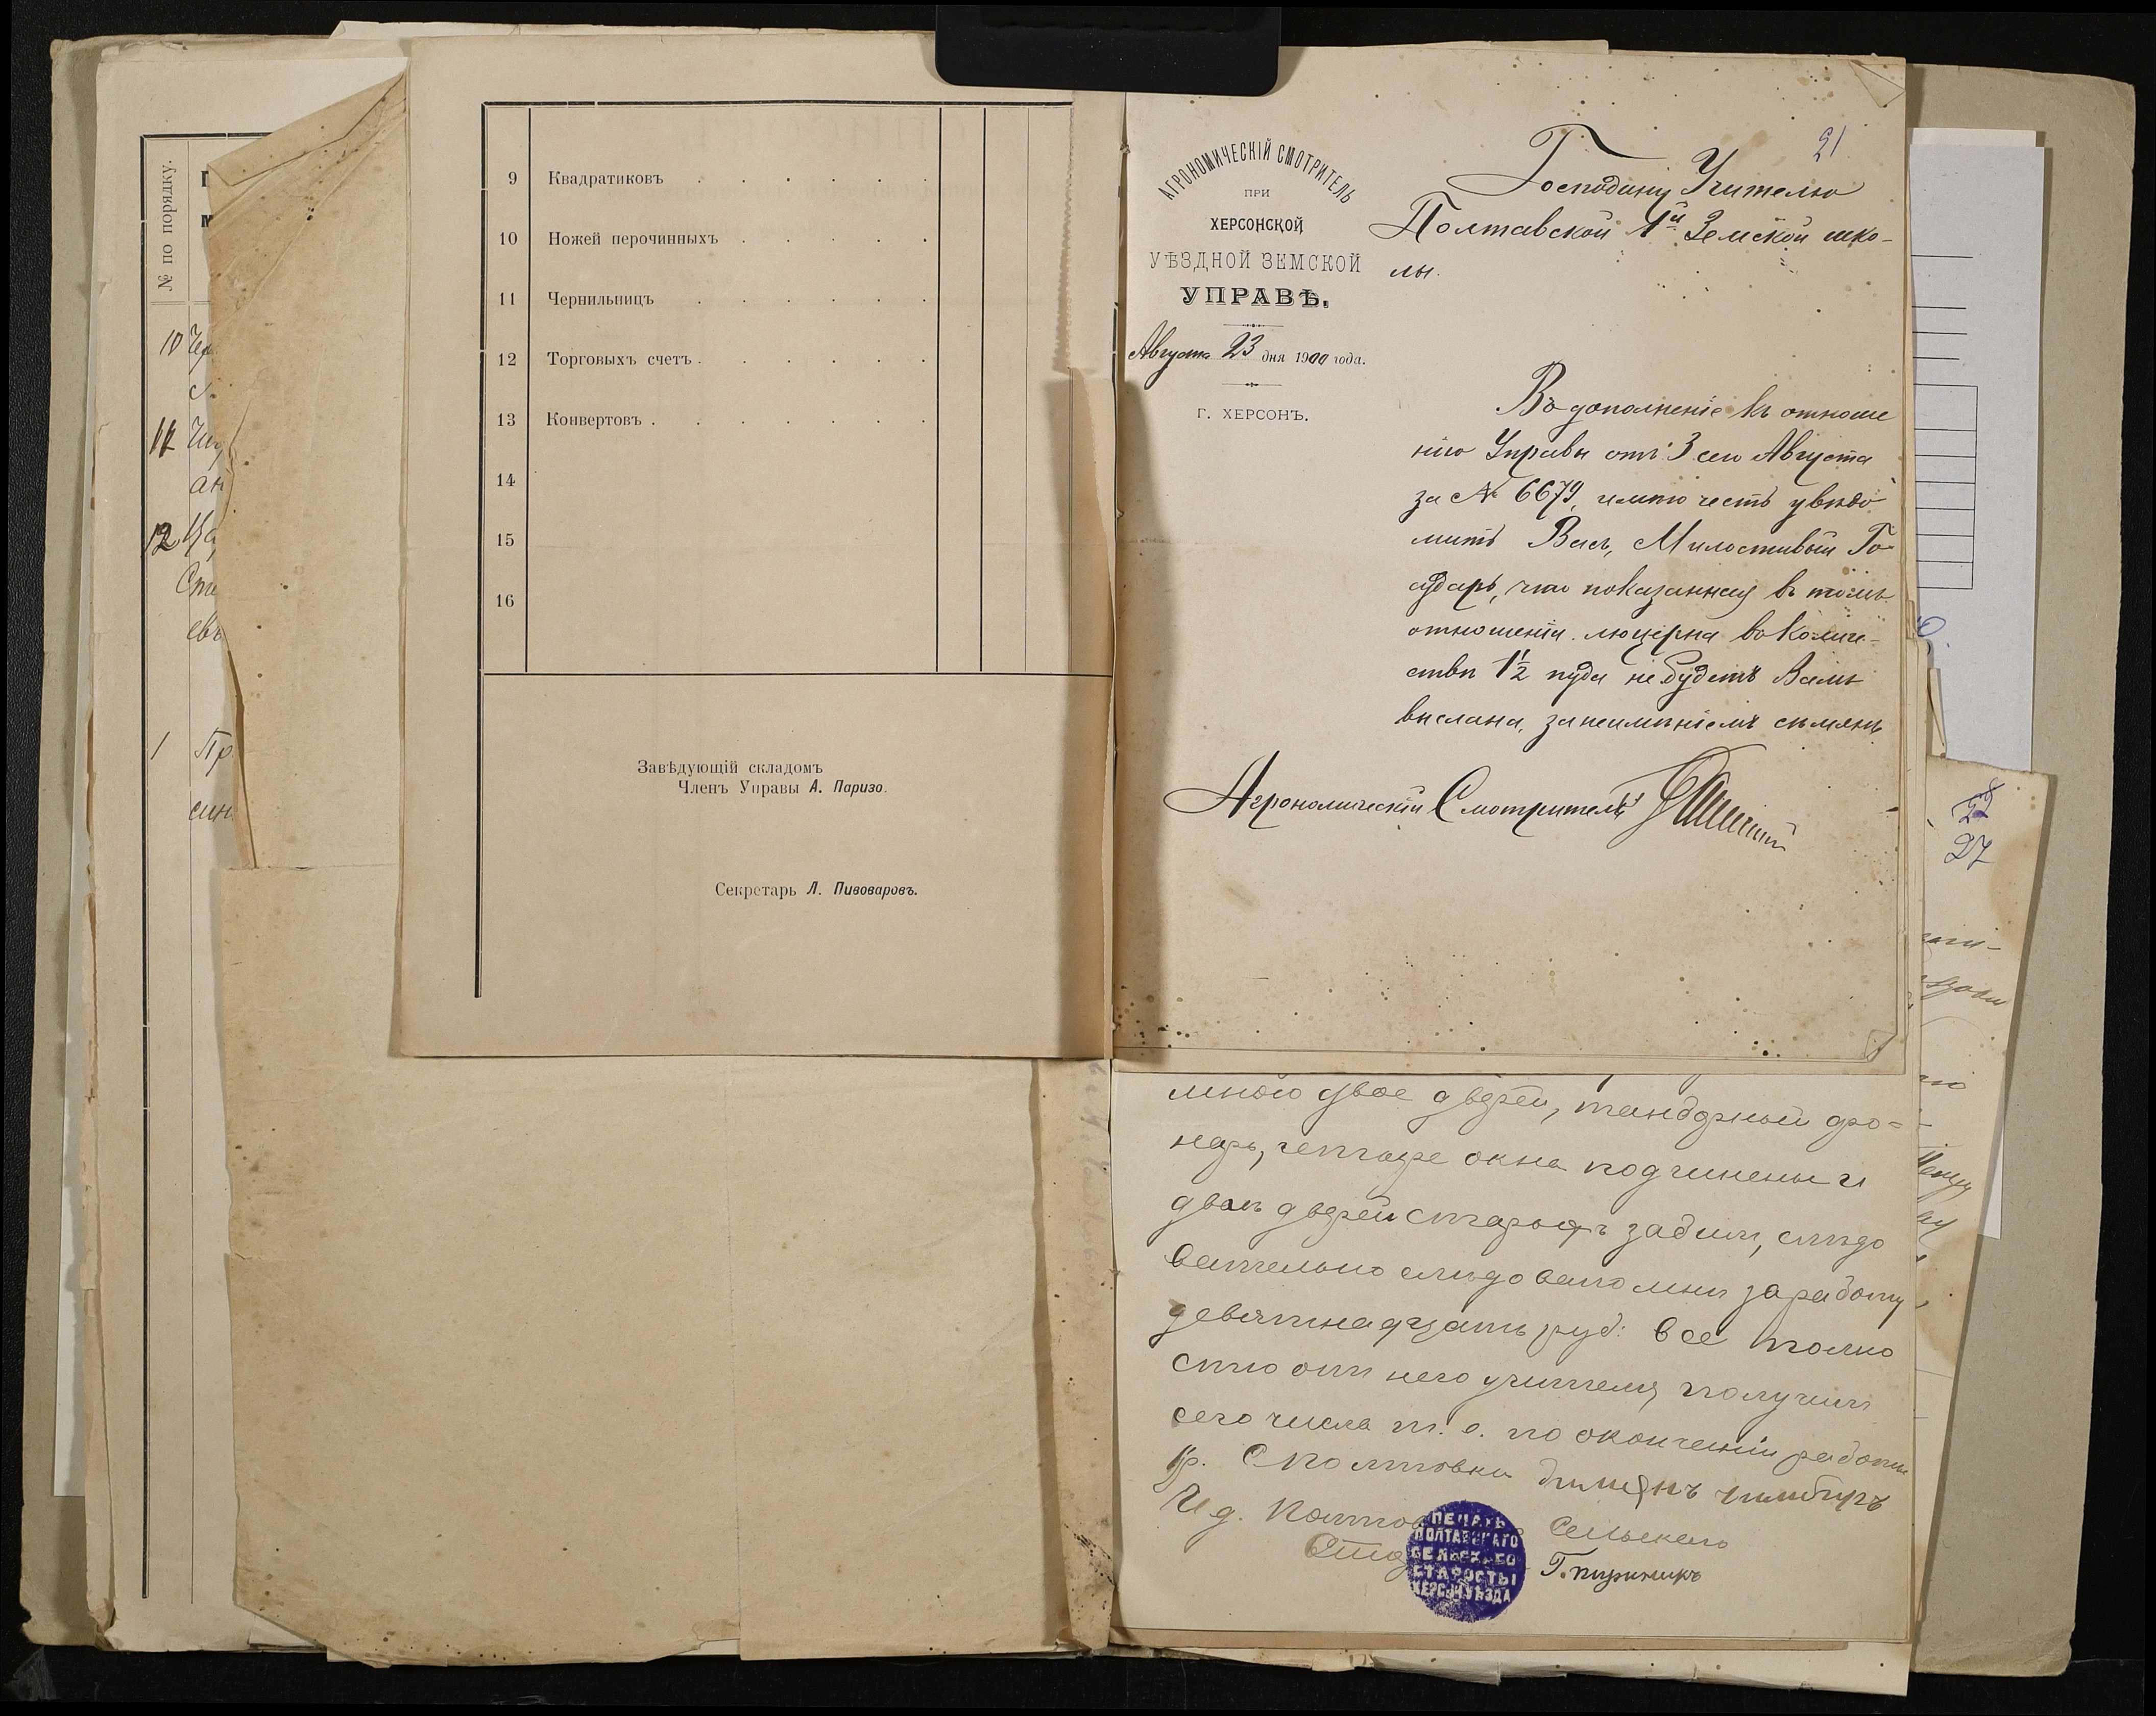 № по порядку.
10
11
12
1
9 Квадратиковъ . . . . . .
10 Ножей перочинныхъ . . . . .
11 Чернильницъ . . . . . .
12 Торговыхъ счетъ . . . . . .
13 Конвертовъ . . . . . . .
14
15
16
Завѣдующій складомъ
Членъ Управы А. Паризо.
Секретарь Л. Пивоваровъ.
21
АГРОНОМИЧЕСКІЙ СМОТРИТЕЛЬ
ПРИ
ХЕРСОНСКОЙ
УѢЗДНОЙ ЗЕМСКОЙ
УПРАВѢ.
Августа 23 дня 1900 года.
Г. ХЕРСОНЪ.
Господину Учителю
Полтавской 1й Земской шко-
лы.
Въ дополненіе къ отноше
нію Управы отъ 3 сего Августа
за № 6679, имѣю честь увѣдо
мить Васъ, Милостивый Го
сударь, что показанная въ томъ
отношеніи люцерна въ количе-
ствѣ 1½ пуда не будетъ Вамъ
выслана, за неимѣніемъ сѣмянъ
Агрономическій Смотритель
мною двое дверей, танбурный фо=
нарь, четыре окна подчинены и
двои дверей старыхъ забили, слѣдо
вательно слѣдовало мнѣ за работу
девятнадцать руб: все полно
стю отъ него учителя, получилъ
сего числа т. е. по окончаніи работы
Сельскаго
ПЕЧАТЬ
ПОЛТАВСКАГО
СЕЛЬСКАГО
СТАРОСТЫ
ХЕРСОН. УѢЗДА
22
27